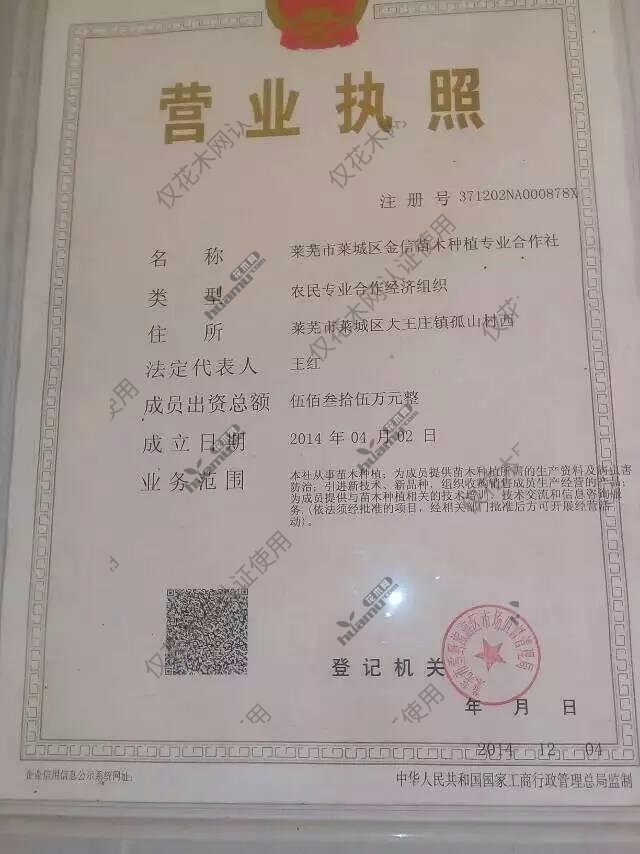 营业执照
注册号 371202NA000878X
名称 莱芜市莱城区金信苗木种植专业合作社
类型 农民专业合作经济组织
住所 莱芜市莱城区大王庄镇孤山村西
法定代表人 王红
成员出资总额 伍佰叁拾伍万元整
成立日期 2014 年 04 月 02 日
业务范围 本社从事苗木种植；为成员提供苗木种植所需的生产资料及病虫害
防治；引进新技术、新品种，组织收购销售成员生产经营的产品；
为成员提供与苗木种植相关的技术培训、技术交流和信息咨询服
务（依法须经批准的项目，经相关部门批准后方可开展经营活
动）。
登记机关
年 月 日
2014 12 04
企业信用信息公示系统网址：
中华人民共和国国家工商行政管理总局监制
仅花木网认
仅花木网认证使用
仅花木网认证使用
使用
仅花
花木网
huamu.com
花木网
huamu.com
花木网
huamu.com